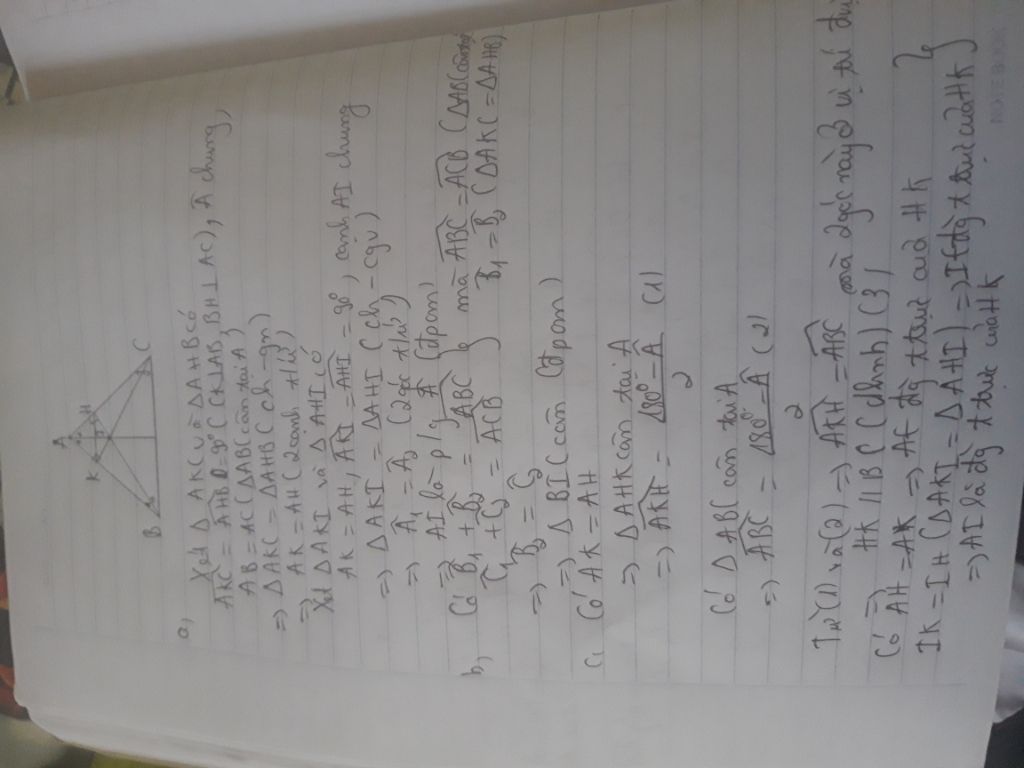 A
K
H
B
C
a, Xét Δ AKC và Δ AHB có
AKC = AHB = 90° (CK⊥AB, BH⊥AC), A chung,
AB = AC (ΔABC cân tại A)
=> ΔAKC = ΔAHB (ch - gn)
=> AK = AH (2 cạnh t/ứ)
Xét ΔAKI và ΔAHI có
AK = AH, AKI = AHI = 90°, cạnh AI chung
=> ΔAKI = ΔAHI (ch - cgv)
=> A1 = A2 (2 góc t/ứ)
=> AI là p/g A (đpcm)
b, Có B1 + B2 = ABC } mà ABC = ACB (ΔABC cân
C1 + C2 = ACB B1 = (ΔAKC = ΔAHB)
=> B2 = C2
=> Δ BIC cân (đpcm)
c, Có AK = AH
=> ΔAHK cân tại A
=> AKH = 180° - A (1)
2
Có ΔABC cân tại A
=> ABC = 180° - A (2)
2
Từ (1) và (2) => AKH = ABC mà 2 góc này ở vị trí
=> HK // BC (3)
Có AH = AK => t trực của HK }
IK = IH (ΔAKI = ΔAHI) => I t trực của HK }
=> AI là đg t trực của HK
NOTE BOOK